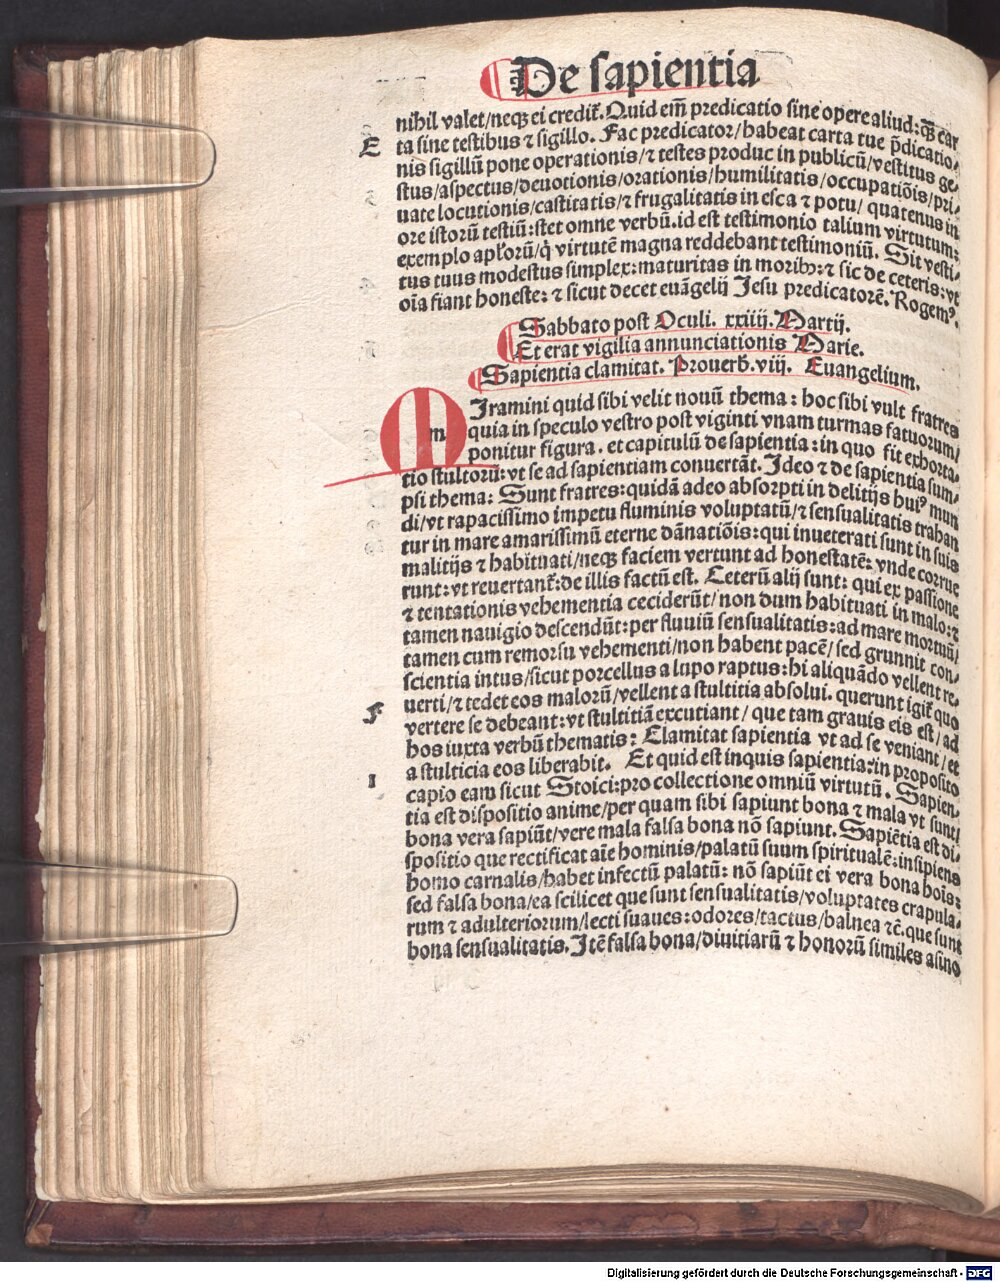 De sapientia
nihil valet/neqꝫ ei credit̃. Quid em̃ predicatio sine opere aliud: q̃ꝫ car
E
ta sine testibus ⁊ sigillo. Fac predicator/habeat carta tue p̃dicatio⸗
nis sigillũ pone operationis/⁊ testes produc in publicũ/vestitus ge⸗
stus/aspectus/deuotionis/orationis/humilitatis/occupatiõis/pri⸗
uate locutionis/castitatis/⁊ frugalitatis in esca ⁊ potu/ quatenus in
ore istorũ testiũ: stet omne verbũ. id est testimonio talium virtutum:
exemplo aplõrũ/q̃ virtutẽ magna reddebant testimoniũ. Sit vesti⸗
tus tuus modestus simplex: maturitas in moribꝫ: ⁊ sic de ceteris: vt
oĩa fiant honeste: ⁊ sicut decet euãgelij Jesu predicatorẽ. Rogemꝰ.
Sabbato post Oculi. xxiiij. Martij.
Et erat vigilia annunciationis Marie.
Sapientia clamitat. Prouerb̃. viij. Euangelium.
m
Iramini quid sibi velit nouũ thema: hoc sibi vult fratres
quia in speculo vestro post viginti vnam turmas fatuorum/
ponitur figura. et capitulũ de sapientia: in quo fit exhorta⸗
tio stultorũ: vt se ad sapientiam conuertãt. Ideo ⁊ de sapientia sum⸗
psi thema: Sunt fratres: quidã adeo absorpti in delitijs huiꝰ mun
di/vt rapacissimo impetu fluminis voluptatũ/⁊ sensualitatis trahan
tur in mare amarissimũ eterne dãnatiõis: qui inueterati sunt in suis
malitijs ⁊ habituati/neqꝫ faciem vertunt ad honestatẽ: vnde corrue
runt: vt reuertant̃: de illis factũ est. Ceterũ alij sunt: qui ex passione
⁊ tentationis vehementia ceciderũt/non dum habituati in malo: ⁊
tamen nauigio descendũt: per fluuiũ sensualitatis: ad mare mortuũ/
tamen cum remorsu vehementi/non habent pacẽ/sed grunnit con⸗
scientia intus/sicut porcellus a lupo raptus: hi aliquãdo vellent re⸗
uerti/⁊ tedet eos malorũ/vellent a stultitia absolui. querunt igit̃ quo
F
vertere se debeant: vt stultitiã excutiant/ que tam grauis eis est/ ad
hos iuxta verbũ thematis: Clamitat sapientia vt ad se veniant/ et
a stulticia eos liberabit. Et quid est inquis sapientia: in proposito
1
capio eam sicut Stoici: pro collectione omniũ virtutũ. Sapien⸗
tia est dispositio anime/per quam sibi sapiunt bona ⁊ mala vt sunt/
bona vera sapiũt/vere mala falsa bona nõ sapiunt. Sapiẽtia est di⸗
spositio que rectificat aĩe hominis/palatũ suum spiritualẽ: insipiens
homo carnalis/habet infectũ palatũ: nõ sapiũt ei vera bona hoĩs:
sed falsa bona/ea scilicet que sunt sensualitatis/voluptates crapula⸗
rum ⁊ adulteriorum/lecti suaues: odores/tactus/balnea ⁊c̃. que sunt
bona sensualitatis. Itẽ falsa bona/diuitiarũ ⁊ honorũ similes asino
Digitalisierung gefördert durch die Deutsche Forschungsgemeinschaft - DFG